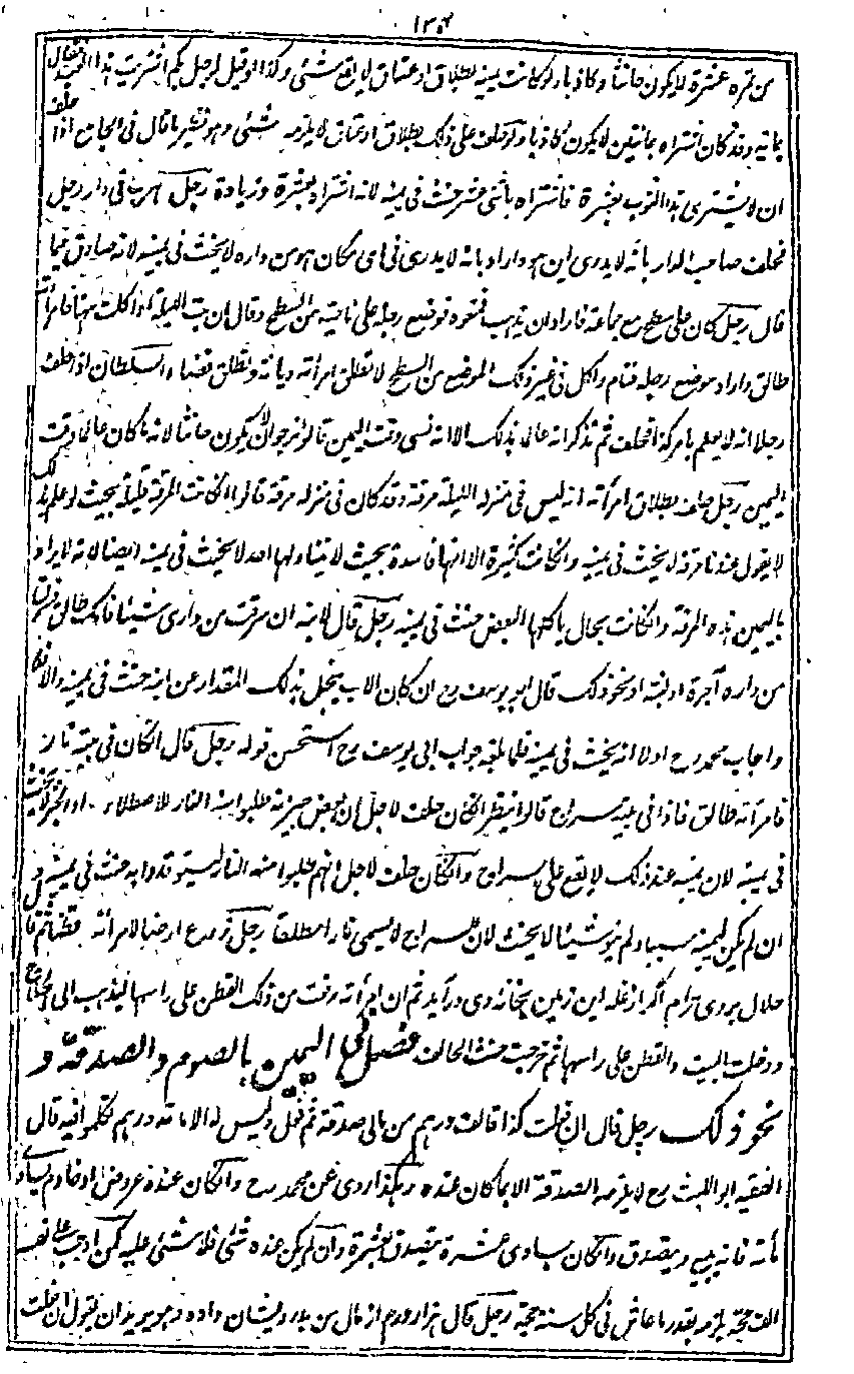 ۱۳۰۴
من غيره عشرة لا يكون حانثا وكاذبا ولو كانت يمينه بطلاق او عتاق لا يقع شئ وكذا لو قيل لرجل بكم اشتريت هذا العبد فقال
بمائة وقد كان اشتراه بمائتين لا يكون كاذبا ولو حلف على ذلك بطلاق او عتاق لا يلزمه شئ وهو نظير ما قال فى الجامع اذا حلف
ان لا يشترى هذا الثوب بعشرة فاشتراه باثنى عشر حنث فى يمينه لانه اشتراه بعشرة وزيادة رجل هرب فى دار رجل
فحلف صاحب الدار بانه لا يدرى اين هو واراد بانه لا يدرى فى اى مكان هو من داره لا يحنث فى يمينه لانه صادق فيما
قال رجل كان على سطح مع جماعة فاراد ان يذهب فمنعوه فوضع رجله على ناحية من السطح وقال ان بت الليلة او اكلت ههنا فامرأته
طالق واراد موضع رجله فنام واكل فى غير ذلك الموضع من السطح لا تطلق امرأته ديانة وتطلق قضاء والسلطان اذا حلف
رجلا انه لا يعلم بامر كذا فحلف ثم تذكر انه عالم بذلك الا انه نسى وقت اليمين قالوا نرجو ان لا يكون حانثا لانه ما كان عالما وقت
اليمين رجل حلف بطلاق امرأته انه ليس فى منزله الليلة مرقة وقد كان فى منزله مرقة قالوا ان كانت المرقة قليلة بحيث لو علم بذلك
لا يقول عندنا مرقة لا يحنث فى يمينه وان كانت كثيرة الا انها فاسدة بحيث لا يتناولها احد لا يحنث فى يمينه ايضا لانه لا يراد
باليمين هذه المرقة وان كانت بحال ياكلها البعض حنث فى يمينه رجل قال لابنه ان سرقت من دارى شيئا فامك طالق فسرق
من داره آجرة او لبنة او نحو ذلك قال ابو يوسف رح ان كان الاب يبخل بذلك المقدار عن ابنه حنث فى يمينه والا فلا
واجاب محمد رح اولا انه يحنث فى يمينه فلما بلغه جواب ابى يوسف رح استحسن قوله رجل قال ان كان فى بيته نار
فامرأته طالق فاذا فى بيته سراج قالوا ينظر ان كان حلف لاجل ان بعض جيرانه طلبوا منه النار للاصطلاء او الخبز لا يحنث
فى يمينه لان يمينه عند ذلك لا يقع على السراج وان كان حلف لاجل انهم طلبوا منه النار ليستوقدوا به حنث فى يمينه و
ان لم يكن ليمينه سبب ولم ينو شيئا لا يحنث لان السراج لا يسمى نارا مطلقا رجل زرع ارضا لامرأته قطنا ثم قال
حلال بر وى حرام اگر از غله اين زمين بخانه وى در آيد ثم ان امرأته رفعت من ذلك القطن على راسها ليذهب الى الحلاج
ودخلت البيت والقطن على راسها ثم خرجت حنث الحالف فصل فى اليمين بالصوم والصدقة و
نحو ذلك رجل قال ان فعلت كذا فالف درهم من مالى صدقة ثم فعل وليس له الا مائة درهم تكلموا فيه قال
الفقيه ابو الليث رح لا يلزمه الصدقة الا بما كان عنده وهكذا روى عن محمد رح وان كان عنده عروض او خادم يساوى
مائة فانه يبيع ويتصدق وان كان يساوى عشرة يتصدق بعشرة وان لم يكن عنده شئ فلا شئ عليه كمن اوجب على نفسه
الف حجة يلزمه بقدر ما عاش فى كل سنة حجة رجل قال هزار درم از مال من بدرويشان داده وهو يريد ان يقول ان فعلت